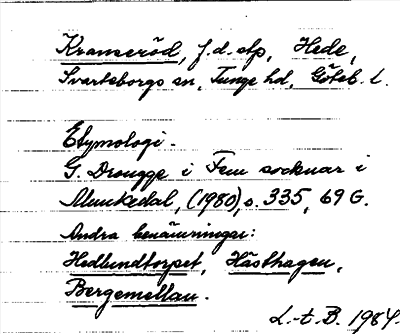 Kranseröd, f.d. stp, Hede,
Svarteborgs sn, Tunge hd, Göteb. l.
Etymologi.
G. Drougge i Fem socknar i
Munkedal, (1980), s. 335, 69 G.
Andra benämningar:
Hedlundtorpet, Hästhagen,
Bergemellan.
L-t. B. 1984.